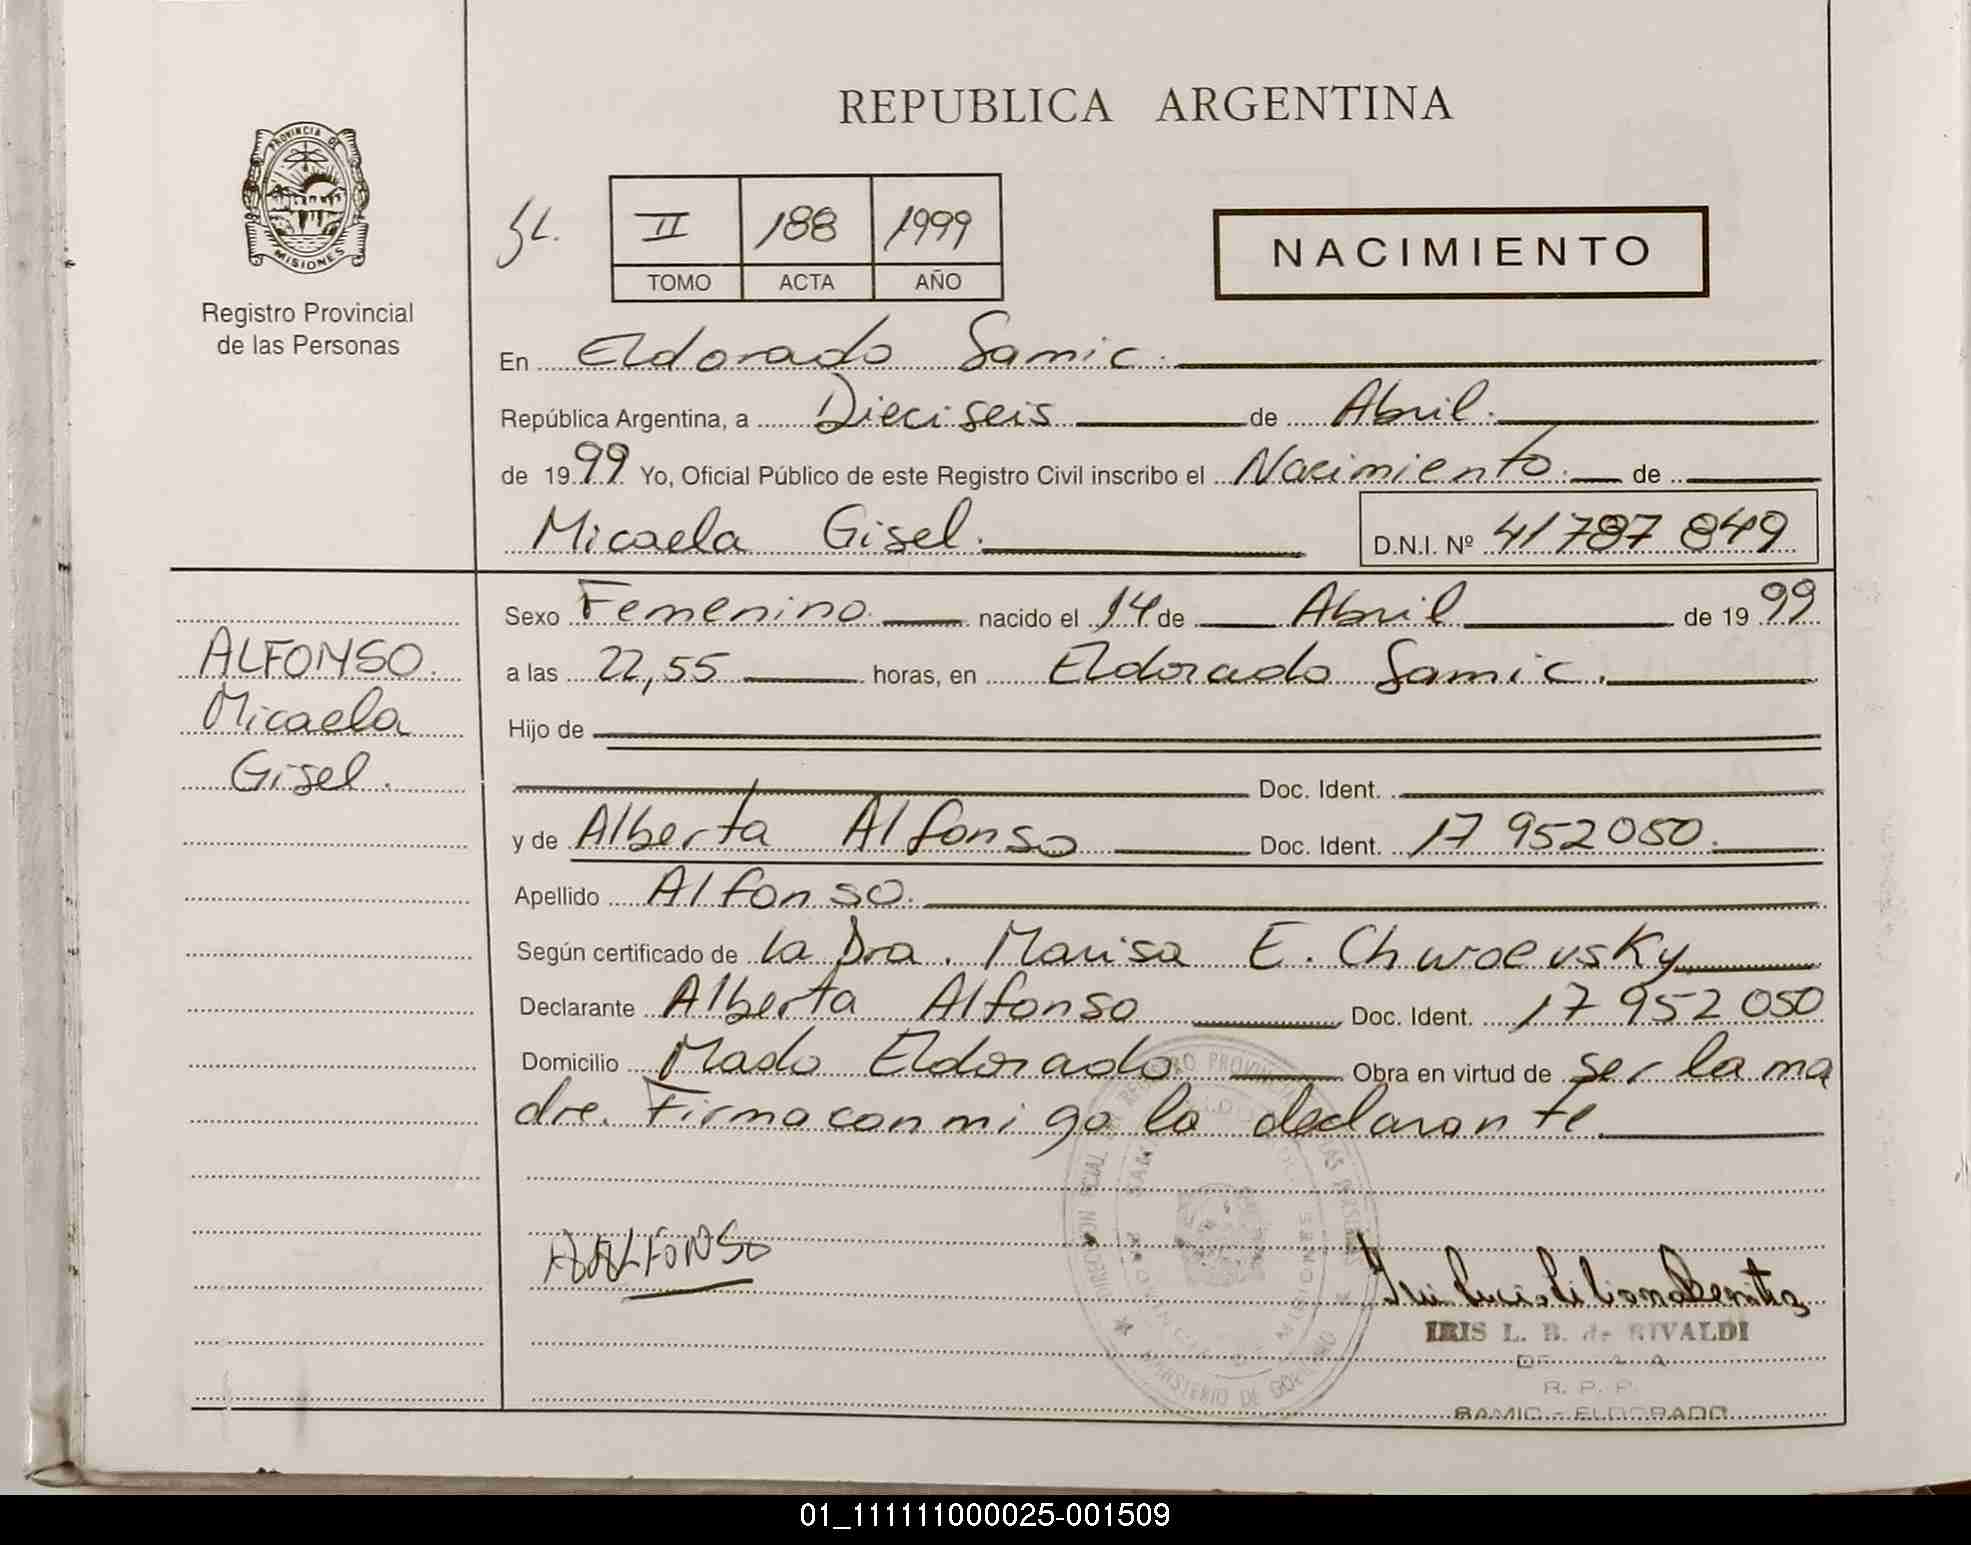 REPUBLICA ARGENTINA
PROVINCIA DE
MISIONES
Registro Provincial
de las Personas
II 188 1999
TOMO ACTA AÑO
NACIMIENTO
En Eldorado Samic.
República Argentina, a Dieciseis de Abril.
de 1999 Yo, Oficial Público de este Registro Civil inscribo el Nacimiento. de
Micaela Gisel. D.N.I. Nº 41787849
ALFONSO.
Micaela
Gisel.
Sexo Femenino nacido el 14 de Abril de 1999
a las 22,55 horas, en Eldorado Samic.
Hijo de
Doc. Ident.
y de Alberta Alfonso Doc. Ident. 17952050.
Apellido Alfonso.
Según certificado de la Dra. Marisa E. Chwoevsky
Declarante Alberta Alfonso Doc. Ident. 17952050
Domicilio Mado Eldorado Obra en virtud de ser la ma
dre. Firma conmigo la declarante.
AALFONSO
IRIS L. B. de RIVALDI
R. P. P.
SAMIC - ELDORADO
01_111111000025-001509